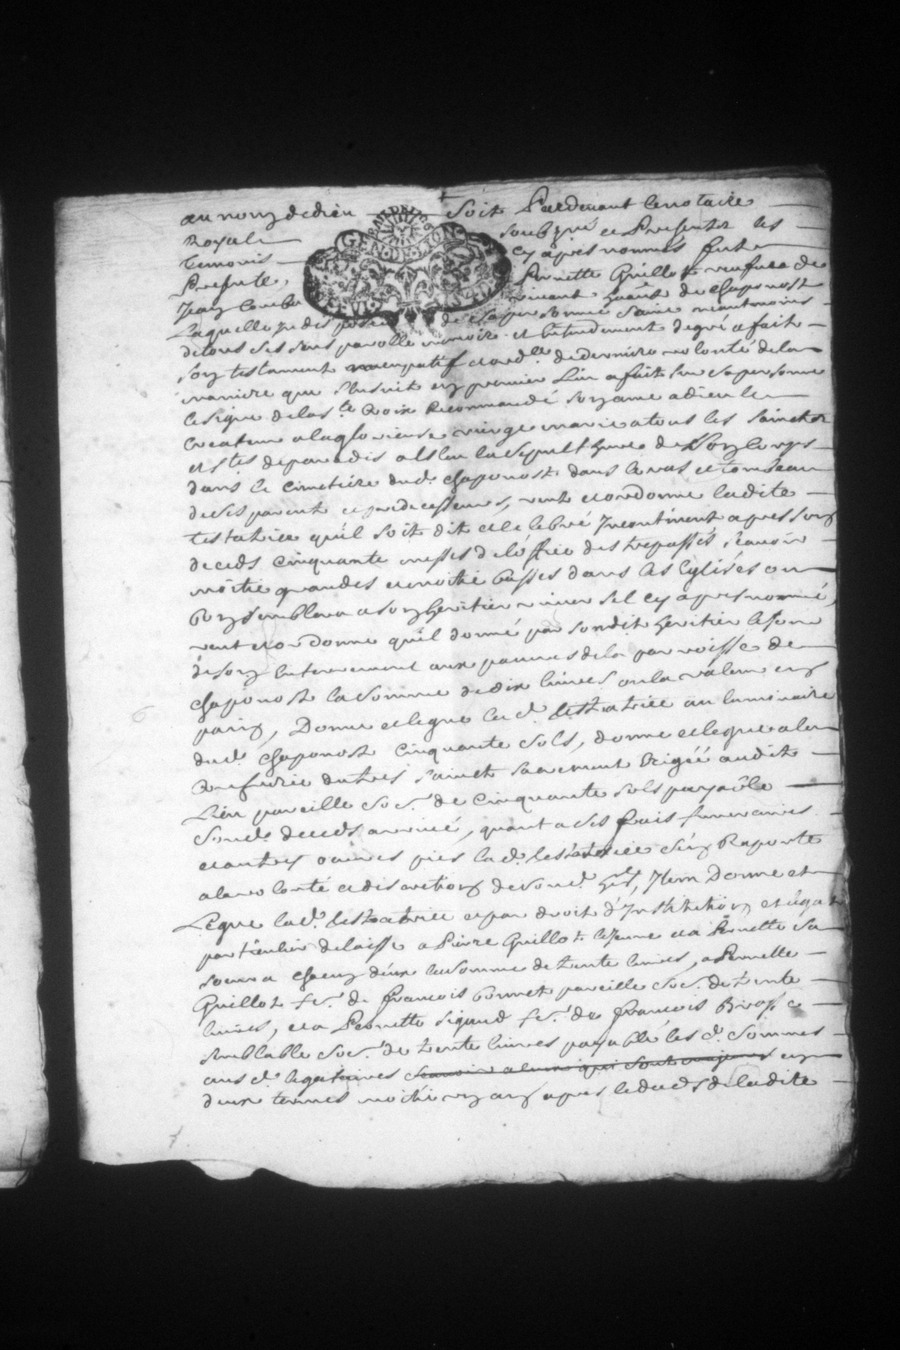 au nom de dieu soit Pardevant le notaire
Royal soubzné ce Present et les
temoins cy apres nommés fut
Presente, Pernette Guillot veufve de
Jean vivant de chaponost
Laquelle de sa personne saine neantmoins
de tous ses sens parolle memoire et entendement de gré a fait
son testament nuncupatif et ord.lle de derniere volonté de la
maniere que s'ensuit en premier Lieu a fait sur sa personne
le signe de la s.te Croix Recommandé son ame a dieu le
Createur a la glorieuse vierge marie a tous les saincts
et s.tes de paradis a la sepulthure de son Corps
dans le cimetiere dud. chaponost dans le vas et tombeau
de ses parents et predecesseurs, veut et ordonne ladite
testatrice qu'il soit dit et celebré Incontinent apres son
deceds cinquante messes de l'office des trepassés scavoir
moitié grandes et moitié basses dans les Eglises ou
bon semblera a son heritier universel cy apres nommé,
veut et ordonne qu'il donné par sondit heritier le jour
de son Enterrement aux pauvres de la parroisse de
chaponost la somme de dix livres ou la valeur en
pain, Donne et legue lad. testatrice au luminaire
dud. chaponost cinquante sols, donne et legue a la
Confrerie du tres sainct sacrement Erigée audit
Lieu pareille so.e de cinquante sols payable
sond. deceds arrivé, quant a ses frais funeraires
et autres œuvres pies lad. testatrice s'en Raporte
a la volonté et discretion de sond. her, Item Donne et
Legue lad. testatrice et par droit d'Institution et legat
particulier delaisse a Pierre Guillot le jeune et a Pernette sa
sœur a chacun d'eux la somme de trente livres, a Pernette
Guillot fe. de françois bonnet pareille so.e de trente
livres, et a Pernette sigaud fe. de françois
semblable so.e de trente livres payable les d. sommes
aus d. legataires en
deux termes moitié un an apres le deceds de ladite